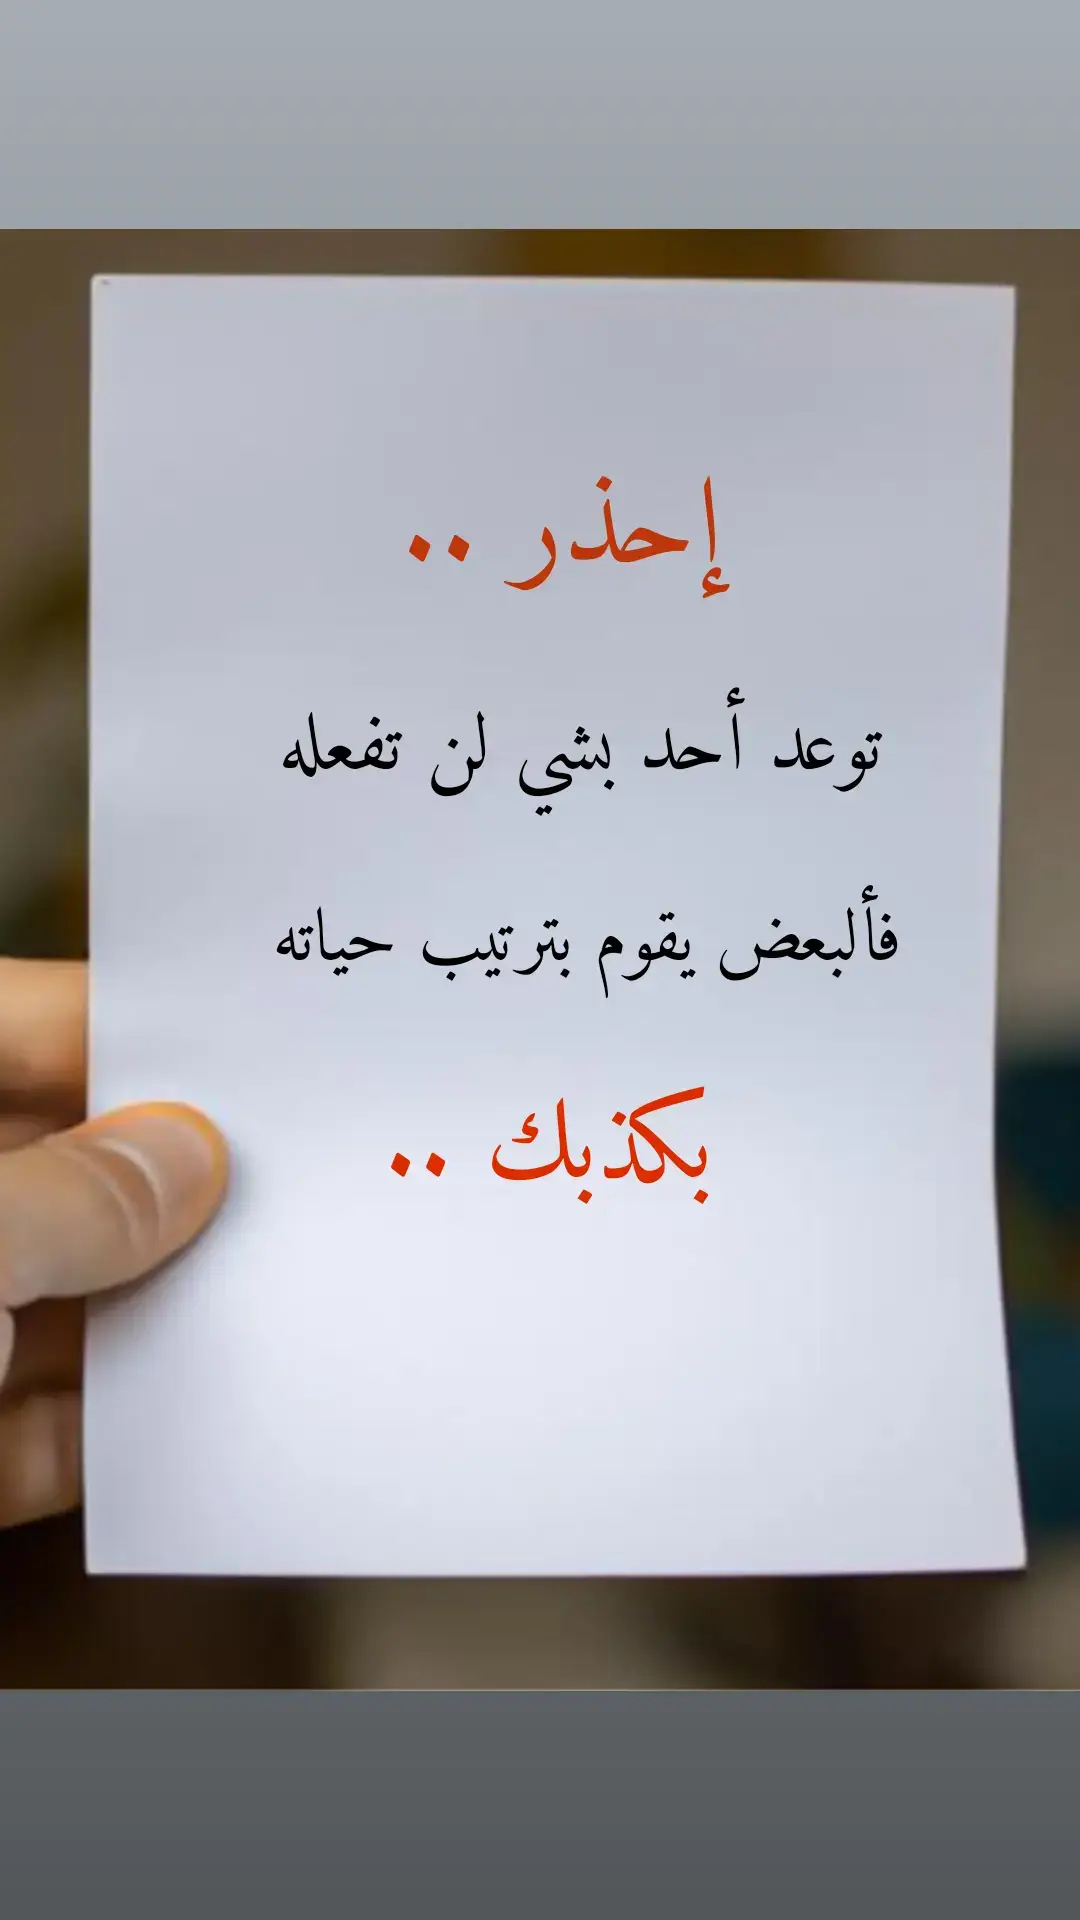 إحذر ..
توعد أحد بشي لن تفعله
فألبعض يقوم بترتيب حياته
بكذبك ..